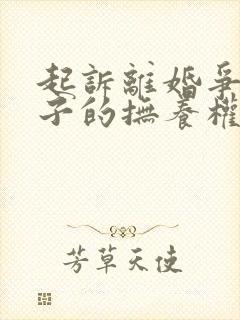 起訴離婚爭
子的撫養權
芳草天使